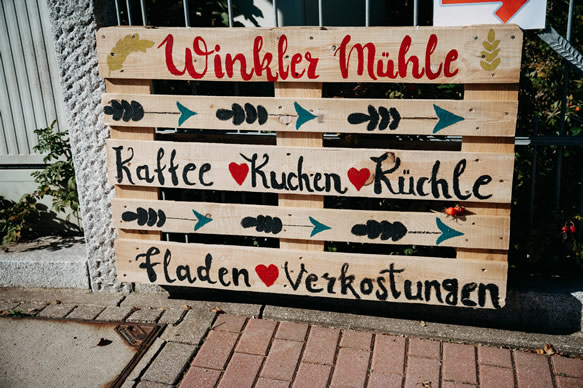 Winkler Mühle
Kaffee ♥ Kuchen ♥ Küchle
Fladen ♥ Verkostungen